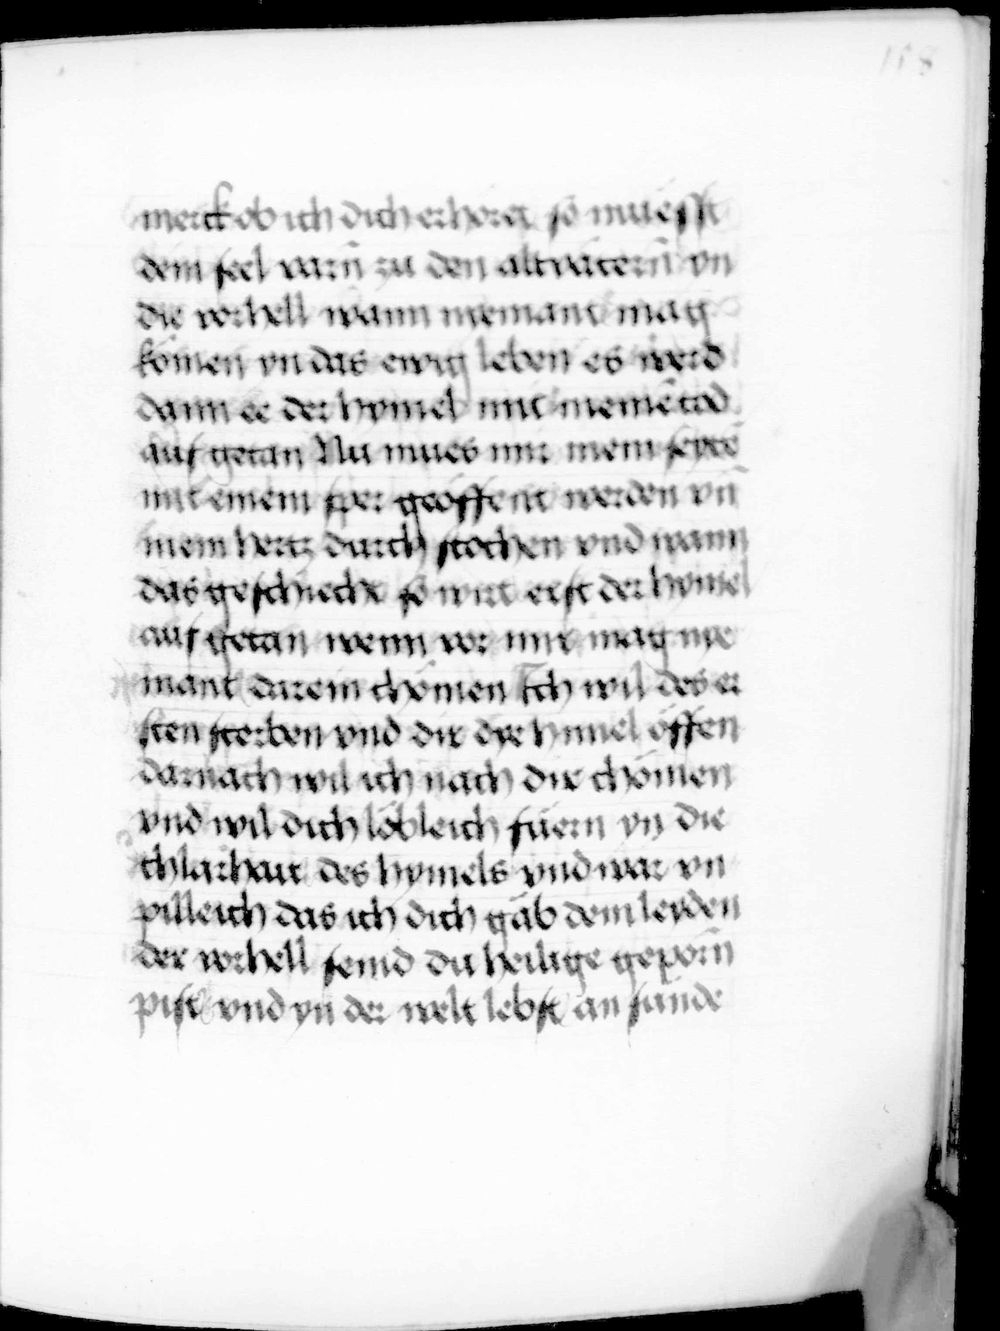 118
merck ob ich dich erhöret so muesst
dein seel varn̄ zu den altvätern̄ yn
die vorhell wann niemant mag
kömen yn das ewig leben es werd
dann ee der hymel mit meinē tod
auf getan Nu mues mir mein seytē
mit einem sper geöffent werden vn̄
mein hertz durch stochen vnd wann
das geschiecht so wirt erst der hymel
auf getan wenn vor mir mag nie
mant darein chömen Ich wil des er
sten sterben vnd dir die hymel öffen
darnach wil ich nach dir chömen
vnd wil dich löbleich füern yn die
chlarhait des hymels vnd wär vn
pilleich das ich dich gäb dem leyden
der vorhell seind du heilige geporn̄
pist vnd yn der welt lebst an sünde